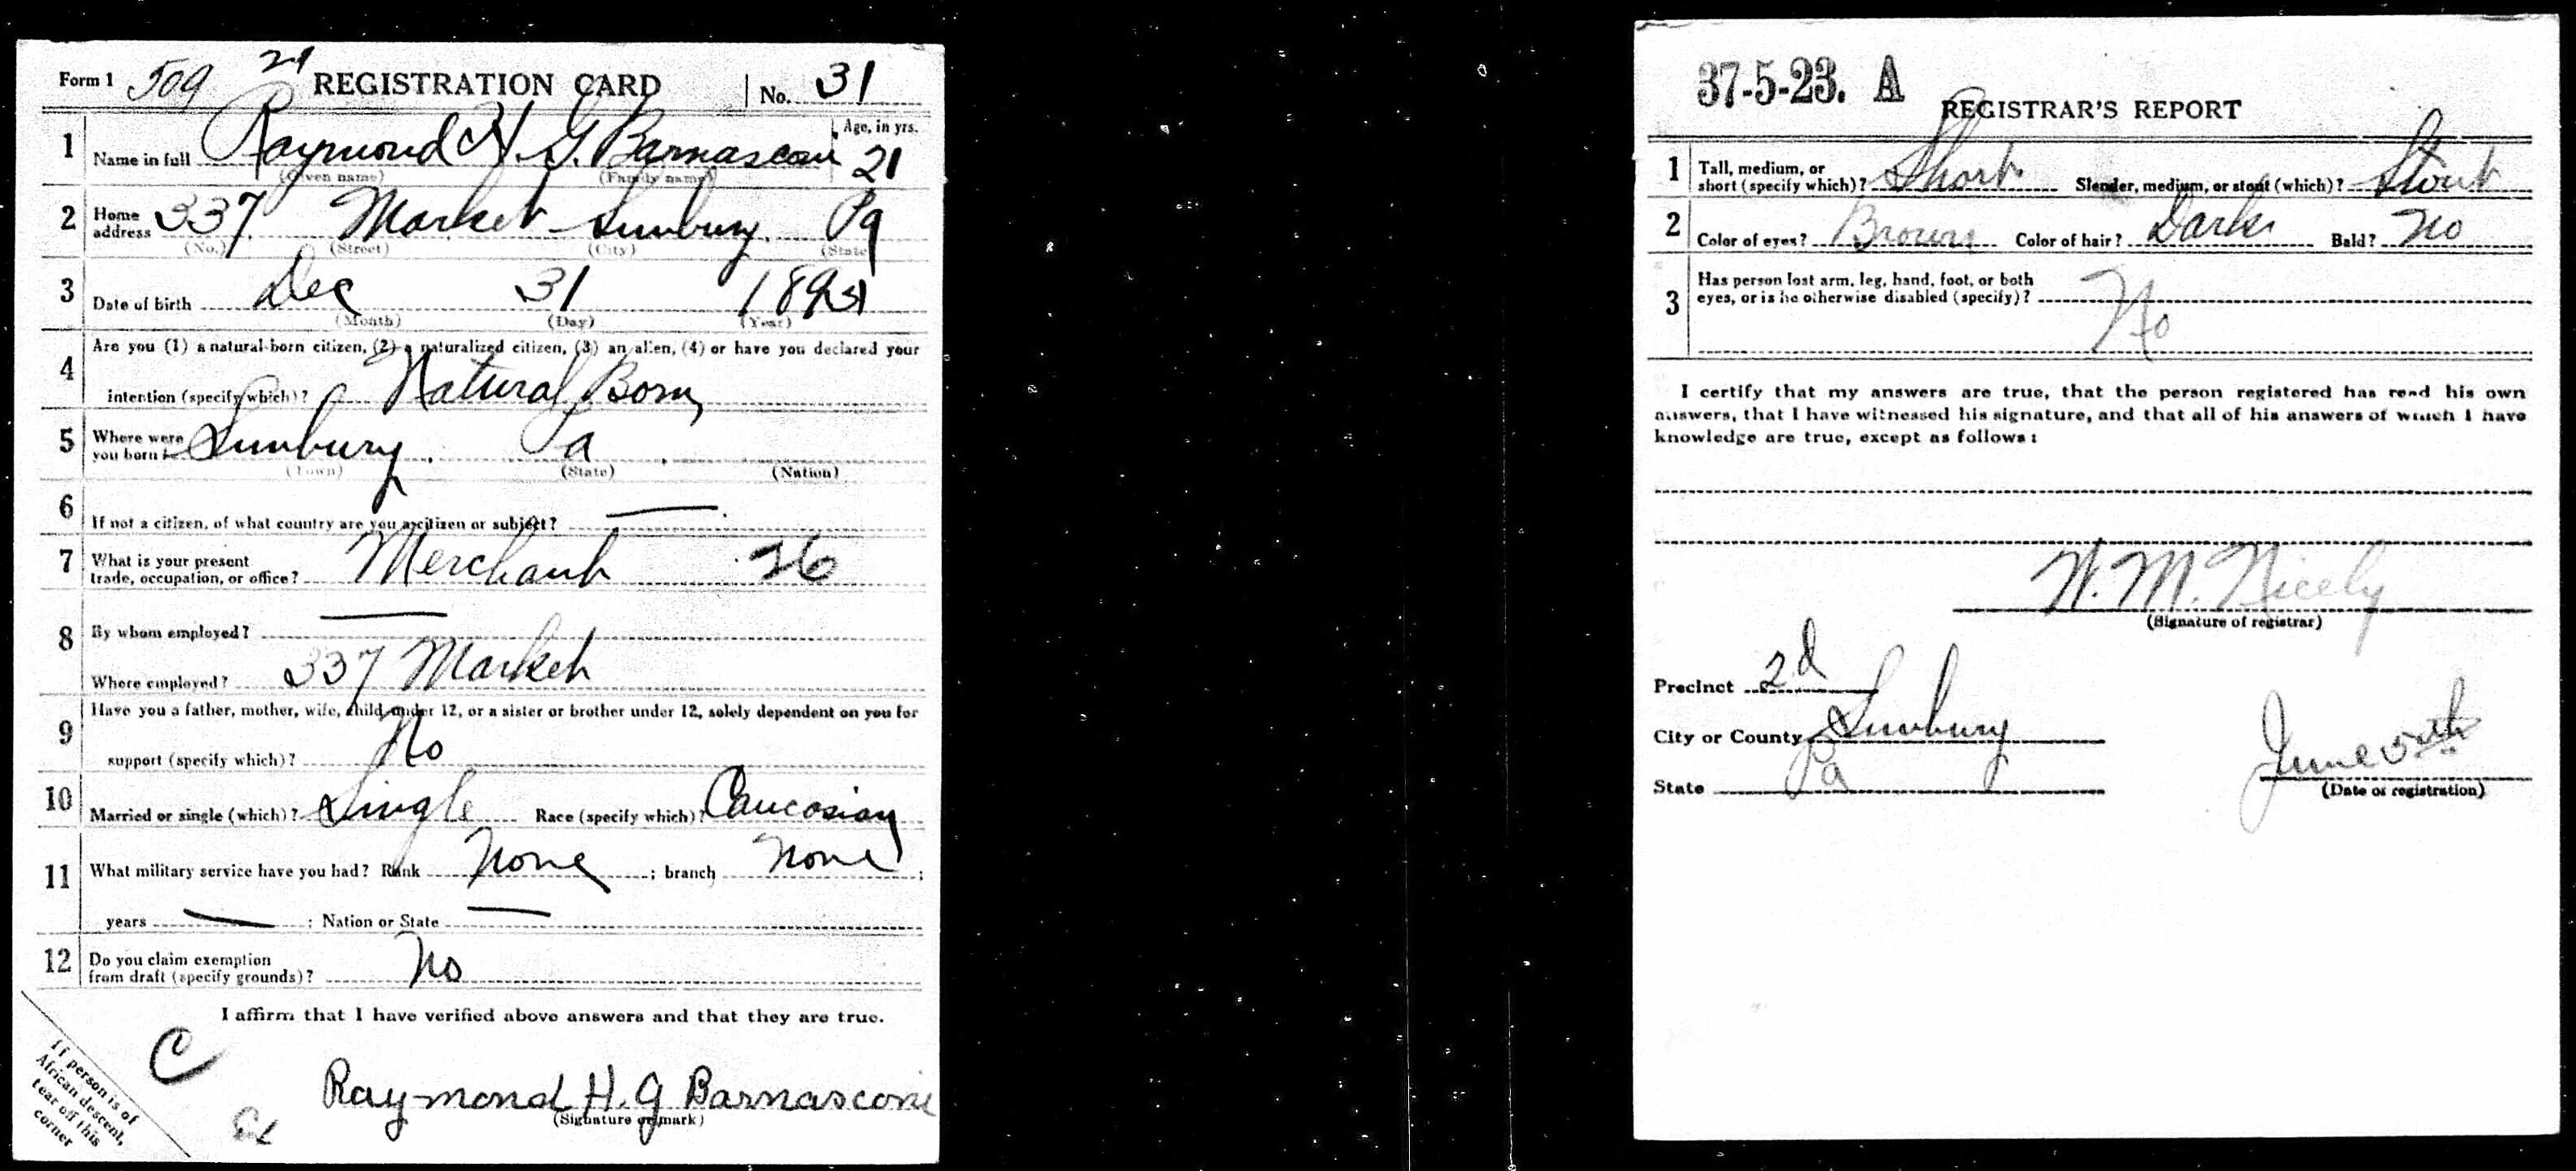 Form 1 509 21 REGISTRATION CARD No. 31
1 Name in full Raymond H. G. Barnascon Age, in yrs. 21
(Given name) (Family name)
2 Home address 337 Market Sunbury Pa
(No.) (Street) (City) (State)
3 Date of birth Dec 31 189
(Month) (Day) (Year)
4 Are you (1) a natural-born citizen, (2) a naturalized citizen, (3) an alien, (4) or have you declared your
intention (specify which)? Natural Born
5 Where were you born? Sunbury. Pa
(Town) (State) (Nation)
6 If not a citizen, of what country are you a citizen or subject? —
7 What is your present
trade, occupation, or office? Merchant 26
8 By whom employed? —
Where employed? 337 Market
9 Have you a father, mother, wife, child under 12, or a sister or brother under 12, solely dependent on you for
support (specify which)? No
10 Married or single (which)? Single Race (specify which)? Caucosian
11 What military service have you had? Rank None ; branch None ;
years — ; Nation or State —
12 Do you claim exemption
from draft (specify grounds)? No
I affirm that I have verified above answers and that they are true.
C
Raymond H. G Barnasconi
(Signature or mark)
If person is of
African descent,
tear off this
corner
37-5-23. A
REGISTRAR'S REPORT
1 Tall, medium, or
short (specify which)? Short Slender, medium, or stout (which)? Stout
2 Color of eyes? Brown Color of hair? Dark Bald? No
3 Has person lost arm, leg, hand, foot, or both
eyes, or is he otherwise disabled (specify)?
No
I certify that my answers are true, that the person registered has read his own
answers, that I have witnessed his signature, and that all of his answers of which I have
knowledge are true, except as follows:
W. M. Nicely
(Signature of registrar)
Precinct 2d
City or County Sunbury
State Pa
June 5th
(Date of registration)